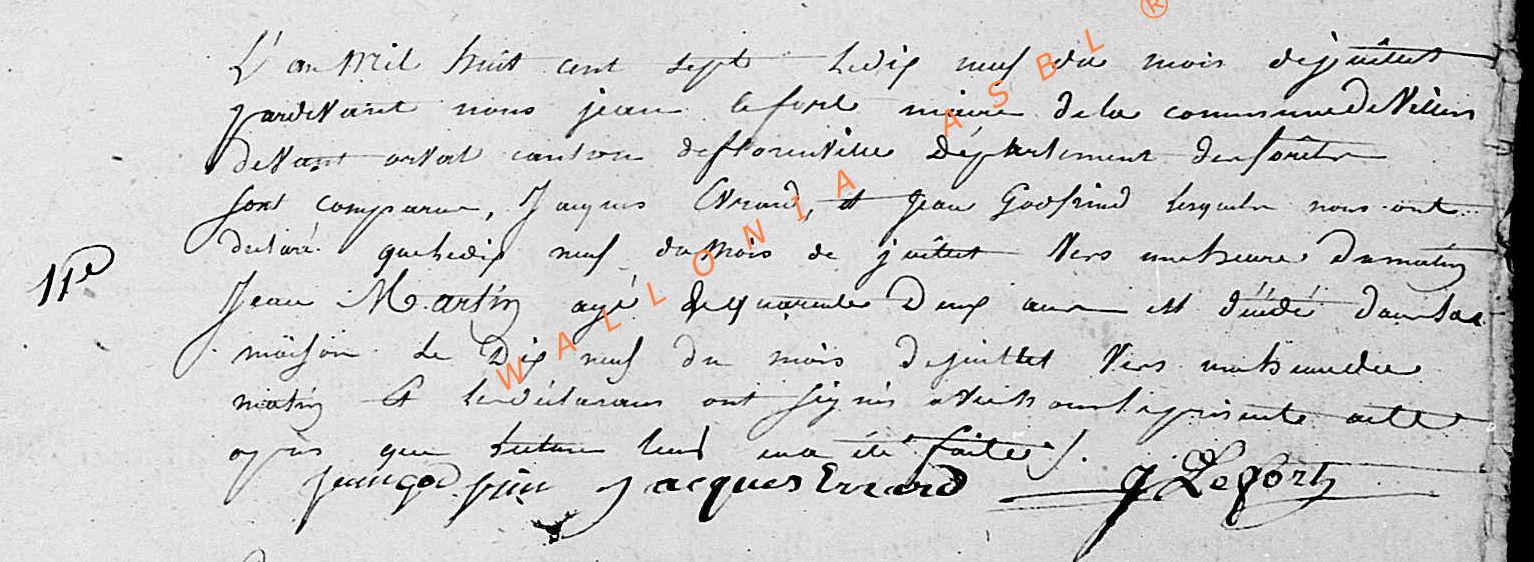 L'an Mil huit cent sept ledix neuf du mois dejuillet
pardevant nous jean lefort maire dela commune deVillers
devant orval canton deflorenville Département desforêts
sont comparus, Jacques Evrard, et Jean Godfrind lesquels nous ont
déclaré queledix neuf dumois de juillet vers uneheure dumatin
11e
Jean Martin agé dequarente Deux ans est décédé dans sa
maison le Dix neuf du mois dejuillet vers uneheuredu
matin et lesdéclarans ont signés avec nous leprésente acte
après que lecture leur en a été faite
jean god frin Jacques Evrard J Lefort
WALLONIA ASBL ®